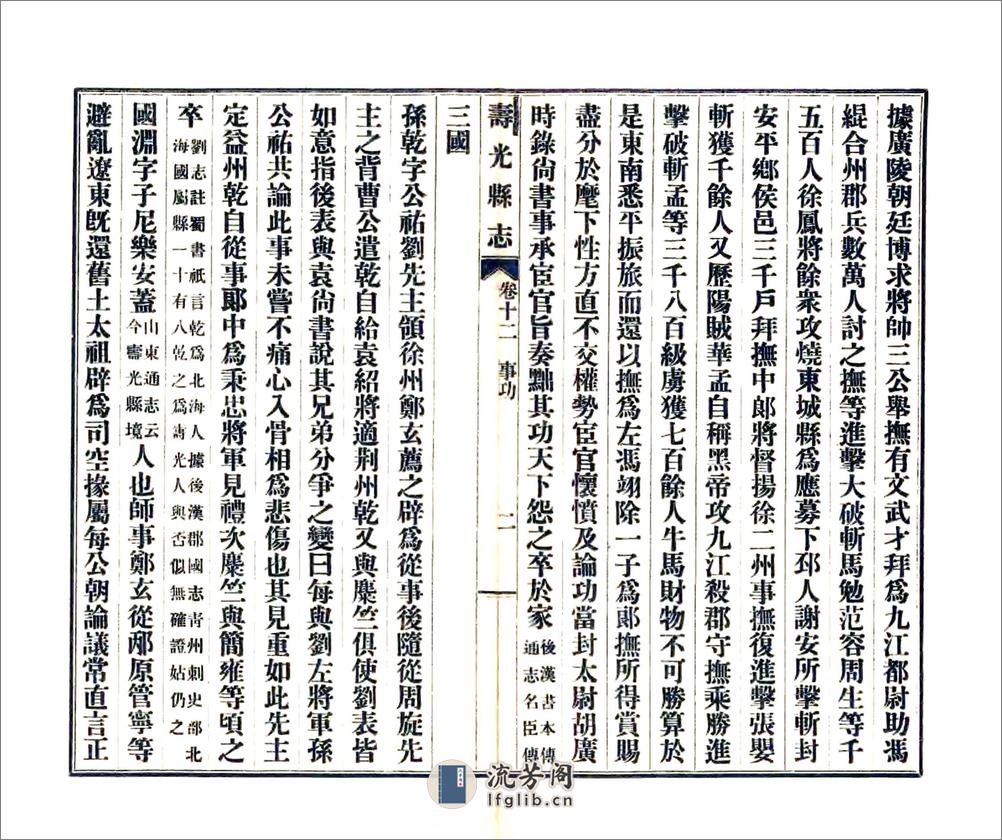 據廣陵朝廷博求將帥三公舉撫有文武才拜爲九江都尉助馮
緄合州郡兵數萬人討之撫等進擊大破斬馬勉范容周生等千
五百人徐鳳將餘衆攻燒東城縣爲應募下邳人謝安所擊斬封
安平鄉侯邑三千戶拜撫中郞將督揚徐二州事撫復進擊張嬰
斬獲千餘人又歷陽賊華孟自稱黑帝攻九江殺郡守撫乘勝進
擊破斬孟等三千八百級虜獲七百餘人牛馬財物不可勝算於
是東南悉平振旅而還以撫爲左馮翊除一子爲郞撫所得賞賜
盡分於麾下性方直不交權勢宦官懷憤及論功當封太尉胡廣
時錄尙書事承宦官旨奏黜其功天下怨之卒於家後漢書本傳通志名臣傳
壽光縣志 卷十二 事功 二
三國
孫乾字公祐劉先主領徐州鄭玄薦之辟爲從事後隨從周旋先
主之背曹公遣乾自給袁紹將適荆州乾又與麋竺俱使劉表皆
如意指後表與袁尙書說其兄弟分爭之變曰每與劉左將軍孫
公祐共論此事未嘗不痛心入骨相爲悲傷也其見重如此先主
定益州乾自從事郞中爲秉忠將軍見禮次麋竺與簡雍等頃之
卒劉志註蜀書祇言乾爲北海人據後漢郡國志靑州刺史部北海國屬縣一十有八乾之爲壽光人與否似無確證姑仍之
國淵字子尼樂安蓋山東通志云今壽光縣境人也師事鄭玄從邴原管寧等
避亂遼東旣還舊土太祖辟爲司空掾屬每公朝論議常直言正
流芳阁
lfglib.cn